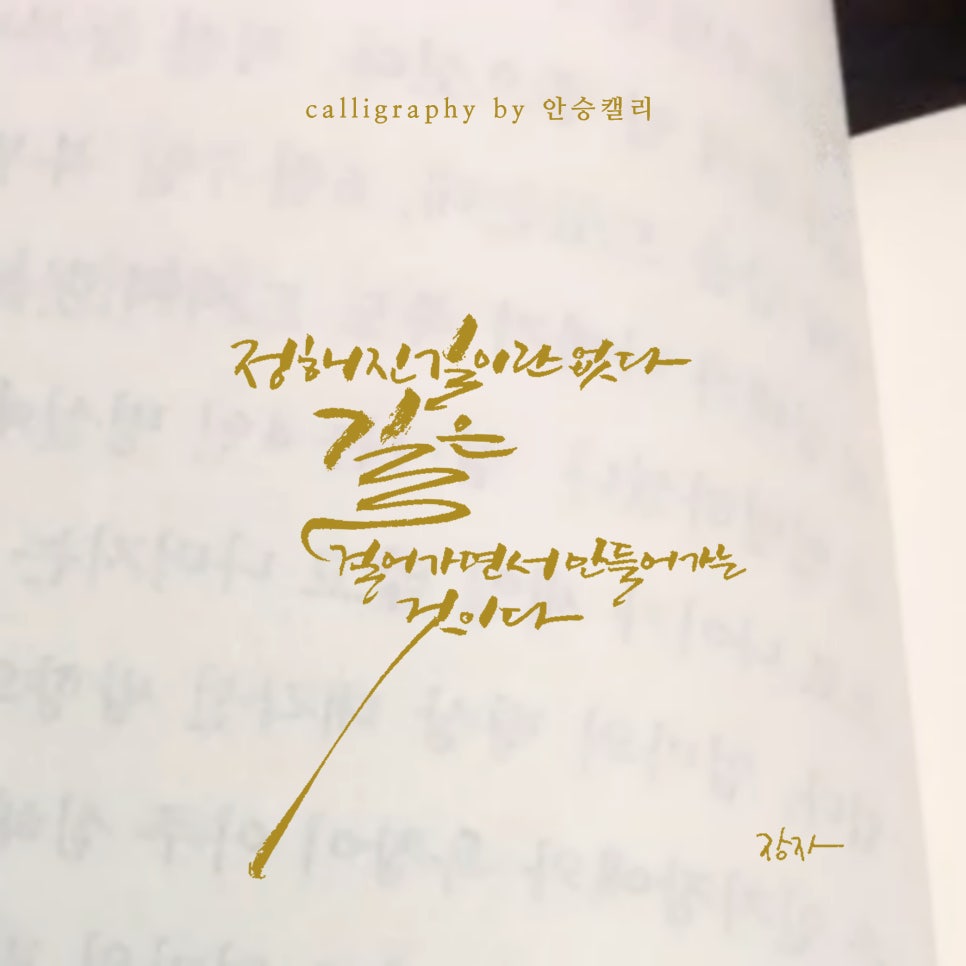 calligraphy by 안승캘리
정해진 길이란 없다
길은
걸어가면서 만들어가는
것이다
장자